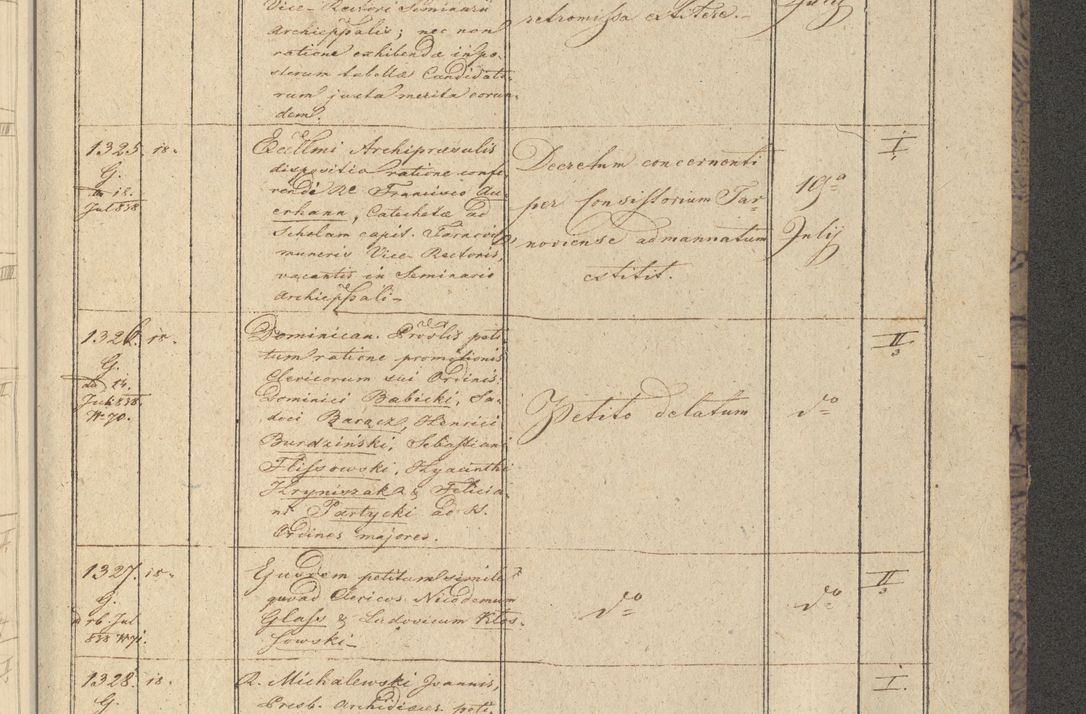 Vice-Rectori Seminarii
Archieppalis; nec non
ratione exhibendae inpo-
sterum tabellae Candidato-
rum juxta merita eorun-
dem.
retromissa extitere.
1325. 18.
G.
18.
Jul 838
Excellmi Archipraesulis
dispositio ratione confe-
rendi Re Francisco Au-
erhann, Catechetae ad
Scholam capit. Tarnovis
muneris Vice-Rectoris,
vacantis in Seminario
Archieppali-
Decretum concernenti
per Consistorium Tar-
noviense admannatum
extitit.
19a
Julij
I
1326. 18.
G.
14.
Jul 838.
N 70.
Dominican. Provlis peti-
tum ratione promotionis
Clericorum sui Ordinis:
Dominici Babicki, Sa-
doci Barącz, Henrici
Burdziński, Sebastiani
Flissowski, Hyacinthi
Kryniszak & Felicia-
ni Partycki ad S.
Ordines majores.
Petito delatum
do
II
3
1327. 18.
G.
Jul
838 N 71.
Ejusdem petitum simile
quoad Clericos Nicodemum
Glass & Ludovicum Kłos-
sowski-
do
do
II
3
1328. 18.
G.
R. Michalewski Joannis,
Presb. Archidioeces. peti-
I.